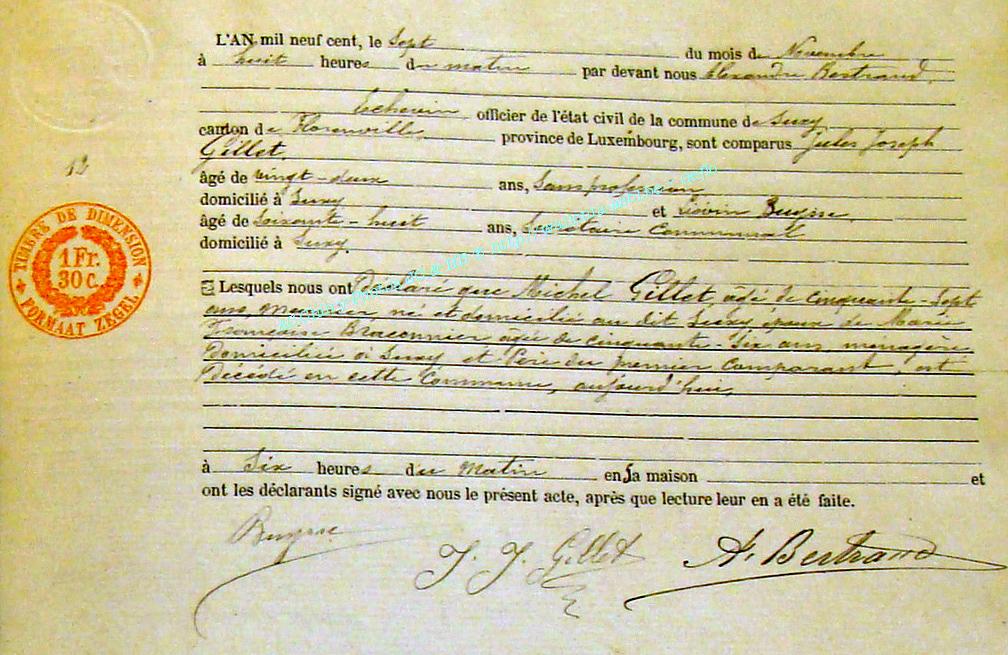 L'AN mil neuf cent, le Sept du mois de Novembre
à huit heures du matin par devant nous Alexandre Bertrand,
Echevin, officier de l'état civil de la commune de Suxy
canton de Florenville, province de Luxembourg, sont comparus Jules Joseph
Gillet,
âgé de vingt-deux ans, Sans profession
domicilié à Suxy et Liévin Buysse,
âgé de Soixante-huit ans, Secrétaire Communal
domicilié à Suxy,
Lesquels nous ont déclaré que Michel Gillet, âgé de cinquante-Sept
ans, né et domicilié au dit Suxy, époux de Marie
Françoise Braconnier âgée de cinquante Six ans, ménagère
domiciliée à Suxy et Père du premier Comparant, est
décédé en cette Commune, aujourd'hui,
à Six heures du matin en sa maison et
ont les déclarants signé avec nous le présent acte, après que lecture leur en a été faite.
Buysse
J. J. Gillet
A. Bertrand
12
TIMBRE DE DIMENSION
1 Fr.
30 C.
FORMAAT ZEGEL